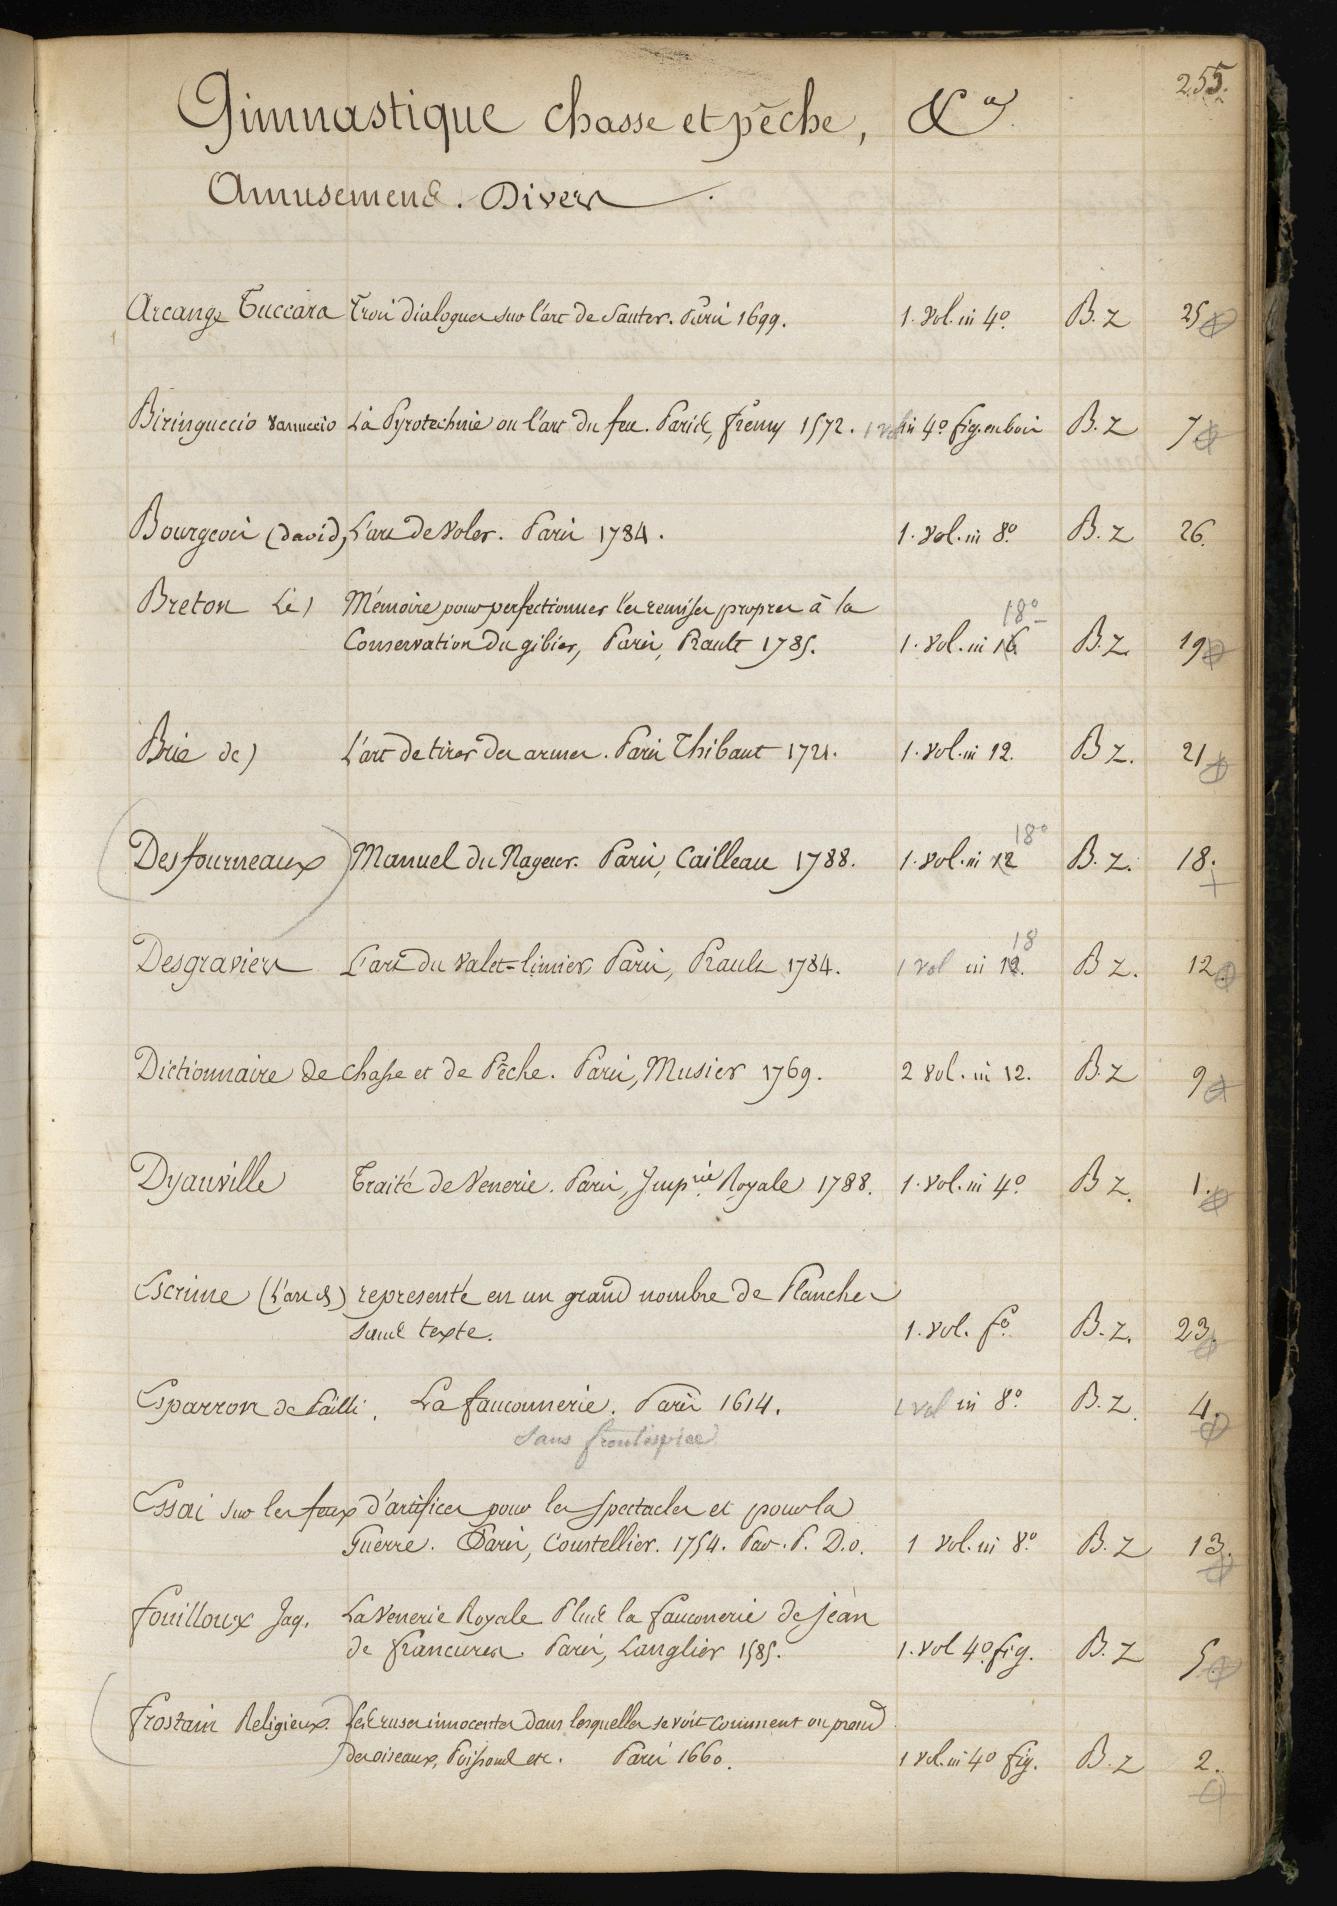 255.
Gimnastique chasse et pêche, &a
Amusements. Divers.
Arcange Tuccara Trois dialogues sur l'art de Sauter. Paris 1699. 1. Vol. in 4º. B. Z 25
Biringuccio Vanuccio La Pyrotechnie ou l'art du feu. Paris, fremy 1572. 1 vol in 4º fig. en bois B. Z 7
Bourgeois (david) L'art de Voler. Paris 1784. 1. Vol. in 8º. B. Z 26.
Breton Le) Mémoire pour perfectionner les remises propres à la 18º
Conservation du gibier, Paris, Prault 1785. 1. Vol. in 16. B. Z. 19
Brie de) L'art de tirer des armes. Paris Thibaut 1721. 1. Vol. in 12. B Z. 21
18º
(Desfourneaux) Manuel du Nageur. Paris, Cailleau 1788. 1. Vol. in 12 B. Z. 18.
18
Desgraviers L'art du Valet-limier, Paris, Prault 1784. 1 vol in 12. B Z. 12.
Dictionnaire de Chasse et de Pêche. Paris, Musier 1769. 2 Vol. in 12. B. Z 9
Dyauville Traité de Venerie. Paris, Imprie Royale 1788. 1. Vol. in 4º B Z. 1.
Escrime (L'art d') representé en un grand nombre de Planches
sans texte. 1. Vol. fº. B. Z. 23.
Esparron de Pailli. La fauconnerie. Paris 1614. 1 vol in 8º. B. Z. 4.
Sans frontispice
Essai sur les feux d'artifices pour les spectacles et pour la
Guerre. Paris, Coustellier. 1754. Par. P. D.o. 1 Vol. in 8º. B. Z 13.
fouilloux Jaq. La Venerie Royale Plus la fauconerie de jean
de francieres. Paris, Langlier 1585. 1. Vol 4º. fig. B. Z 5
(frostain Religieux.) Les ruses innocentes dans lesquelles se voit comment on prend
des oiseaux, Poissons etc. Paris 1660. 1 vol. in 4º fig. B. Z 2.